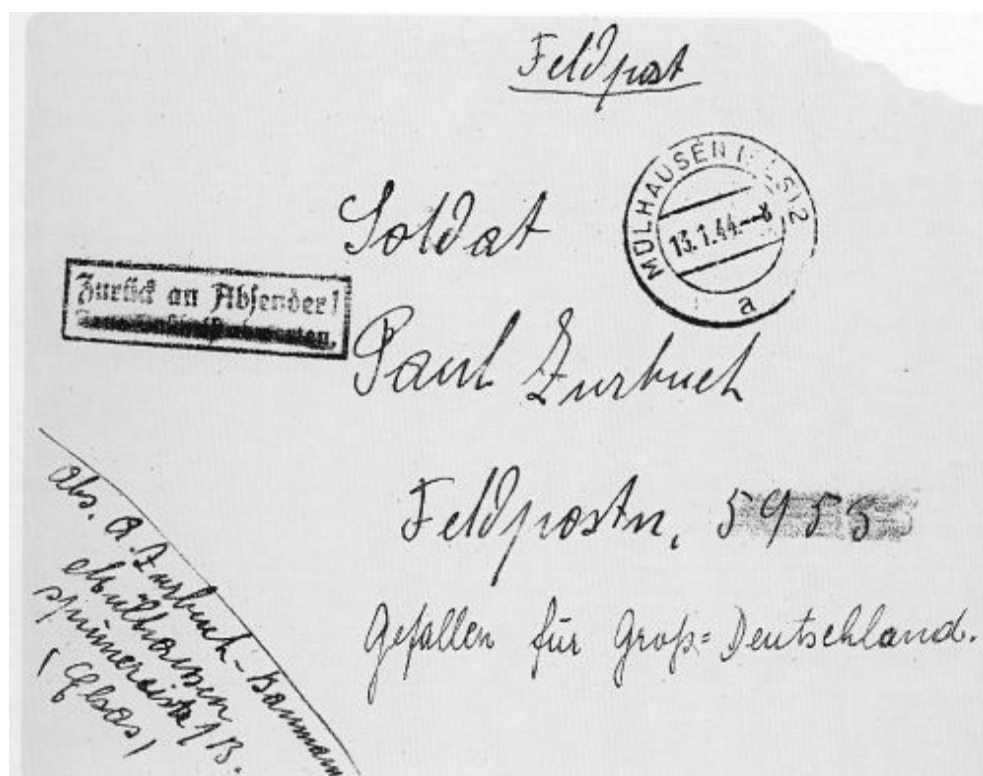 Feldpost
MÜLHAUSEN (ELS) 2
13.1.44.--8
a
Soldat
Zurück an Absender!
Paul Zurbuch
Feldpostn. 5955
Gefallen für Groß=Deutschland.
Abs. A. Zurbuch-Baumann
Mülhausen
(Elsas)